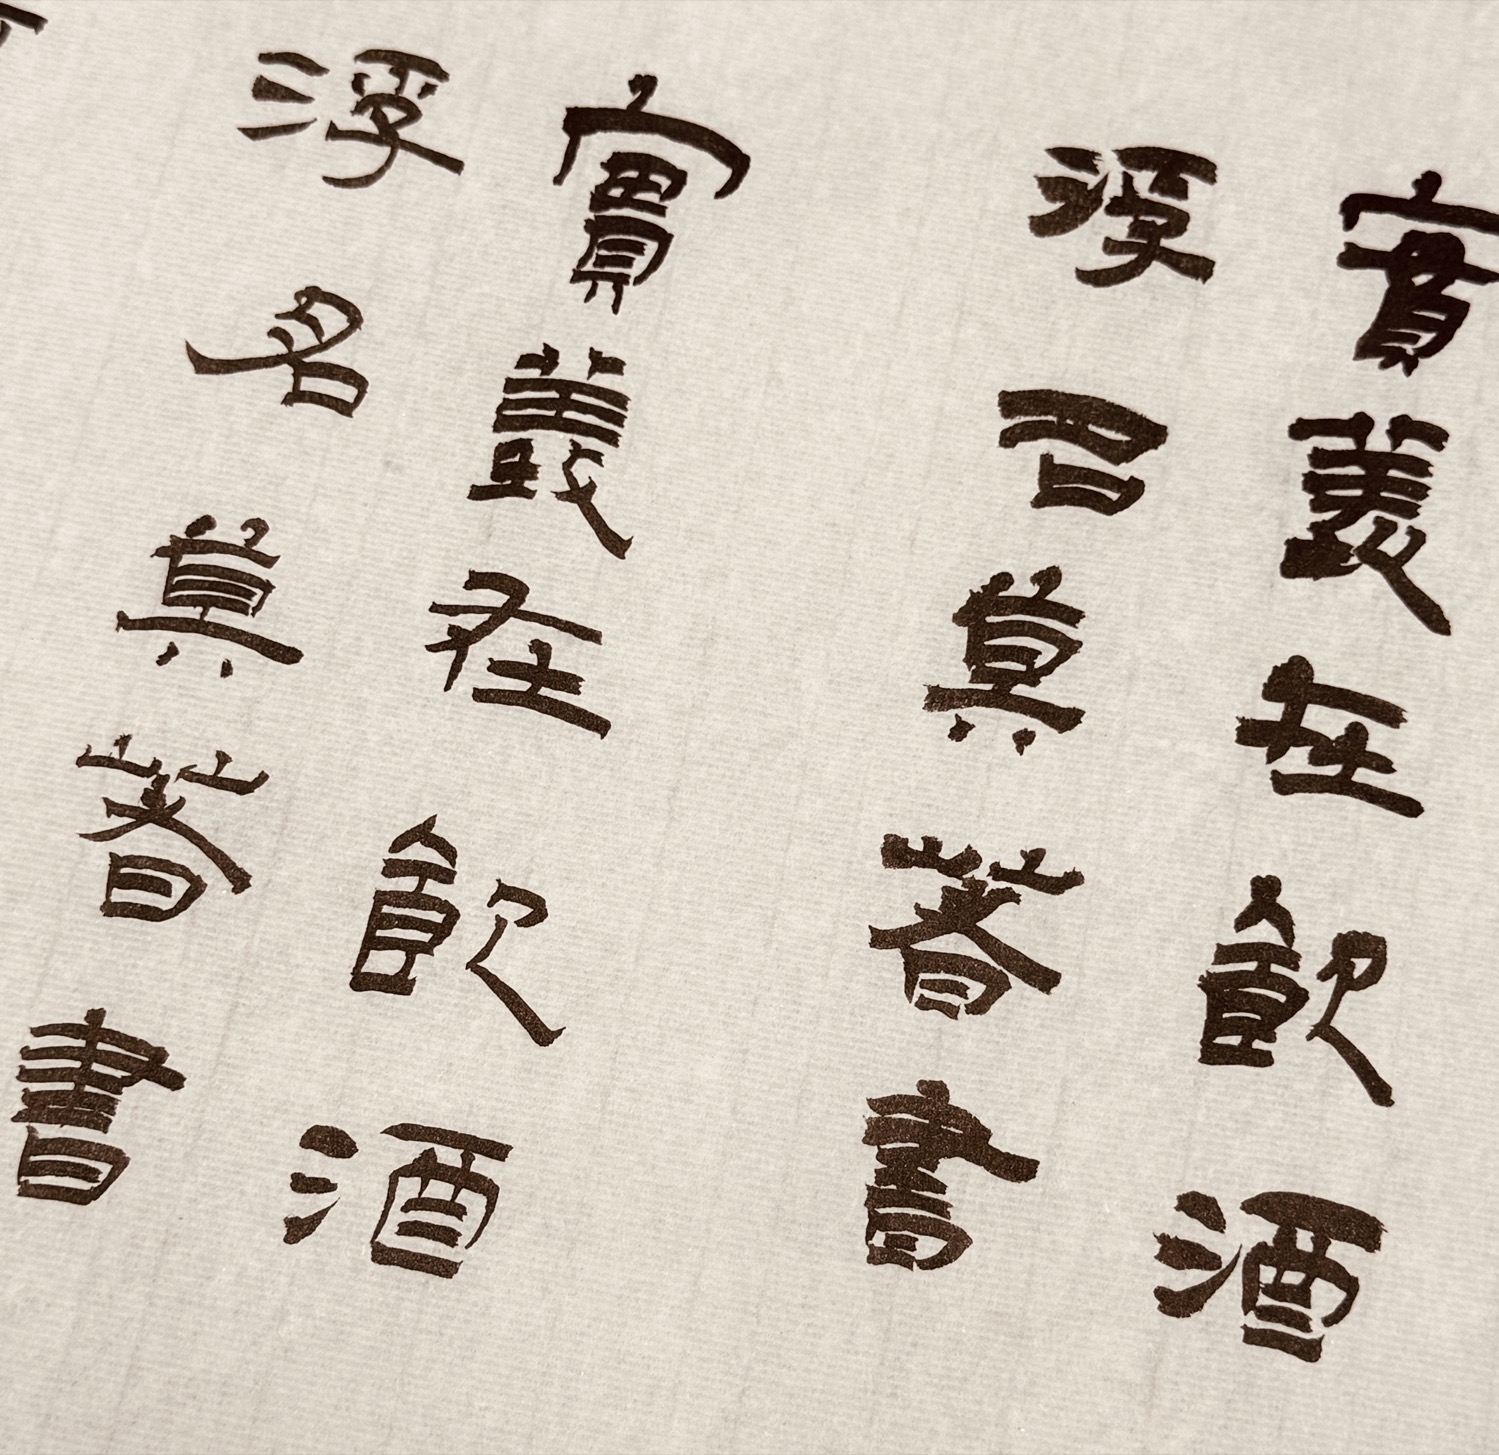 實義在飲酒
浮名莫著書
實義在飲酒
浮名莫著書